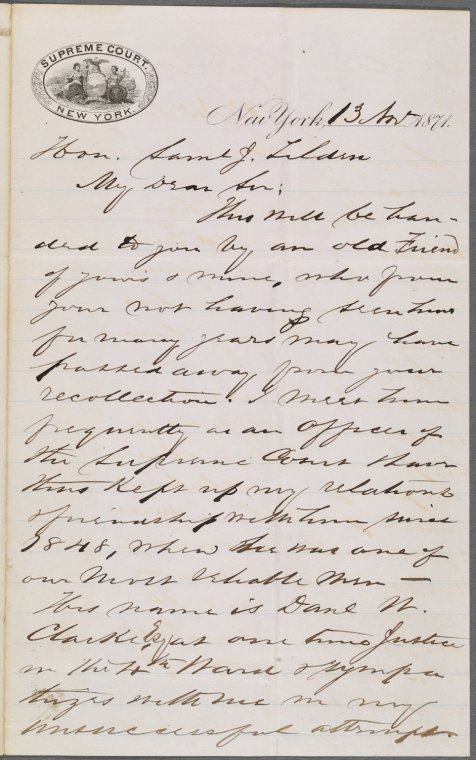 SUPREME COURT.
NEW YORK.
New York, 13 Nov 1871.
Hon. Saml J. Tilden
My Dear Sir;
This will be han-
ded to you by an old Friend
of yours & mine, who from
your not having seen him
for many years may have
passed away from your
recollection. I meet him
frequently as an Officer of
the Supreme Court & have
thus kept up my relations
of friendship with him since
1848, when he was one of
our most valuable men —
His name is Danl W.
Clarke Esq, at one time Justice
in the Ward & sympa
thizes with me in my
unsuccessful attempt